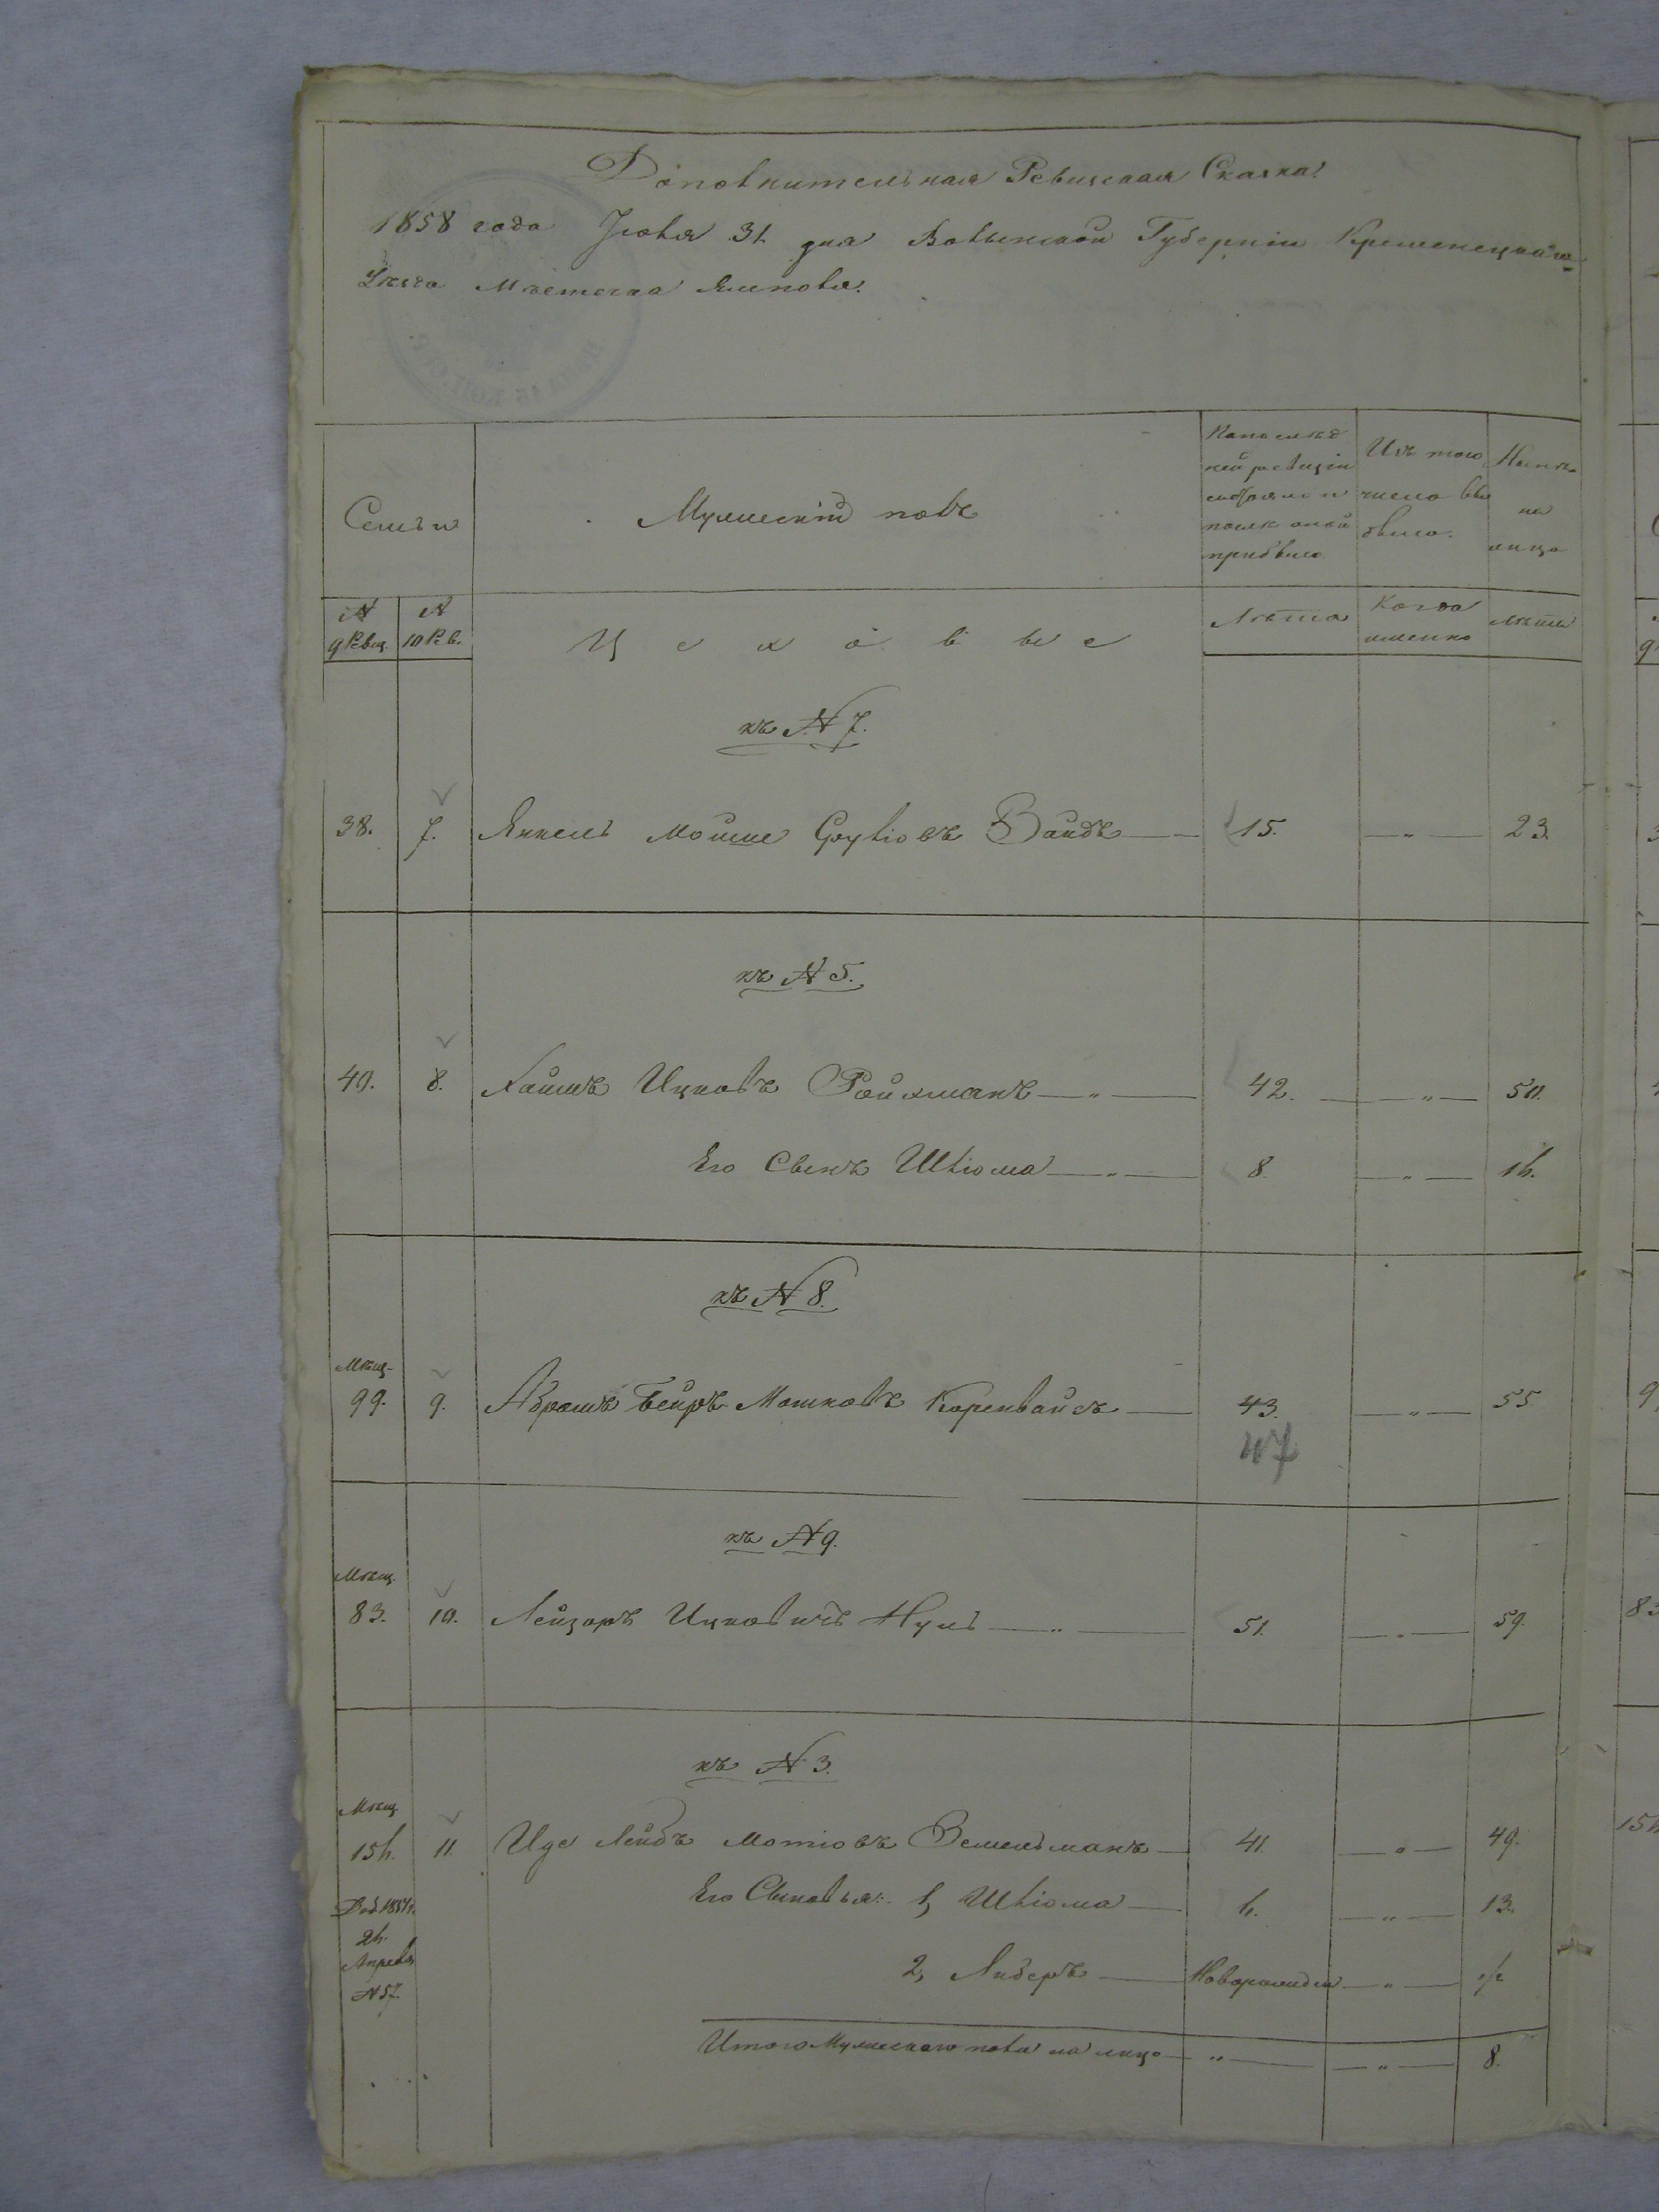 Дополнительная Ревизская Сказка.
1858 года Июля 31 дня Волынской Губерніи Кременецкаго
Уѣзда Мѣстечка Ямполя.
Семьи
Мужескій полъ
По послѣд
ней ревизіи
состояло и
послѣ оной
прибыло
Изъ того
числа вы
было.
Нынѣ
на
лицо
№
9 Ревиз.
№
10 Рев.
Цеховые
Лѣта
Когда
именно
Лѣта
къ № 7.
38. 7. Янкель Мошко Сруліовъ Вайдъ 15. " 23.
къ № 5.
40. 8. Хаимъ Ицковъ Ройхманъ " 42. " 50.
Его Сынъ Шліома " 8. " 16.
къ № 8.
Мѣщ.
99. 9. Абрамъ Бейръ Мошковъ Коренвайсъ 43. " 55.
47
къ № 9.
Мѣщ.
83. 10. Лейзоръ Ицковичъ Нуль " 51. " 59.
къ № 3.
Мѣщ.
156. 11. Иде Лейбъ Мотіовъ Земельманъ 41. " 49.
Доб. 1851 г. Его Сыновья: 1, Шліома 6. " 13.
26.
Апреля 2, Либеръ Новорожден "
№ 57.
Итого Мужескаго пола на лицо " " 8.